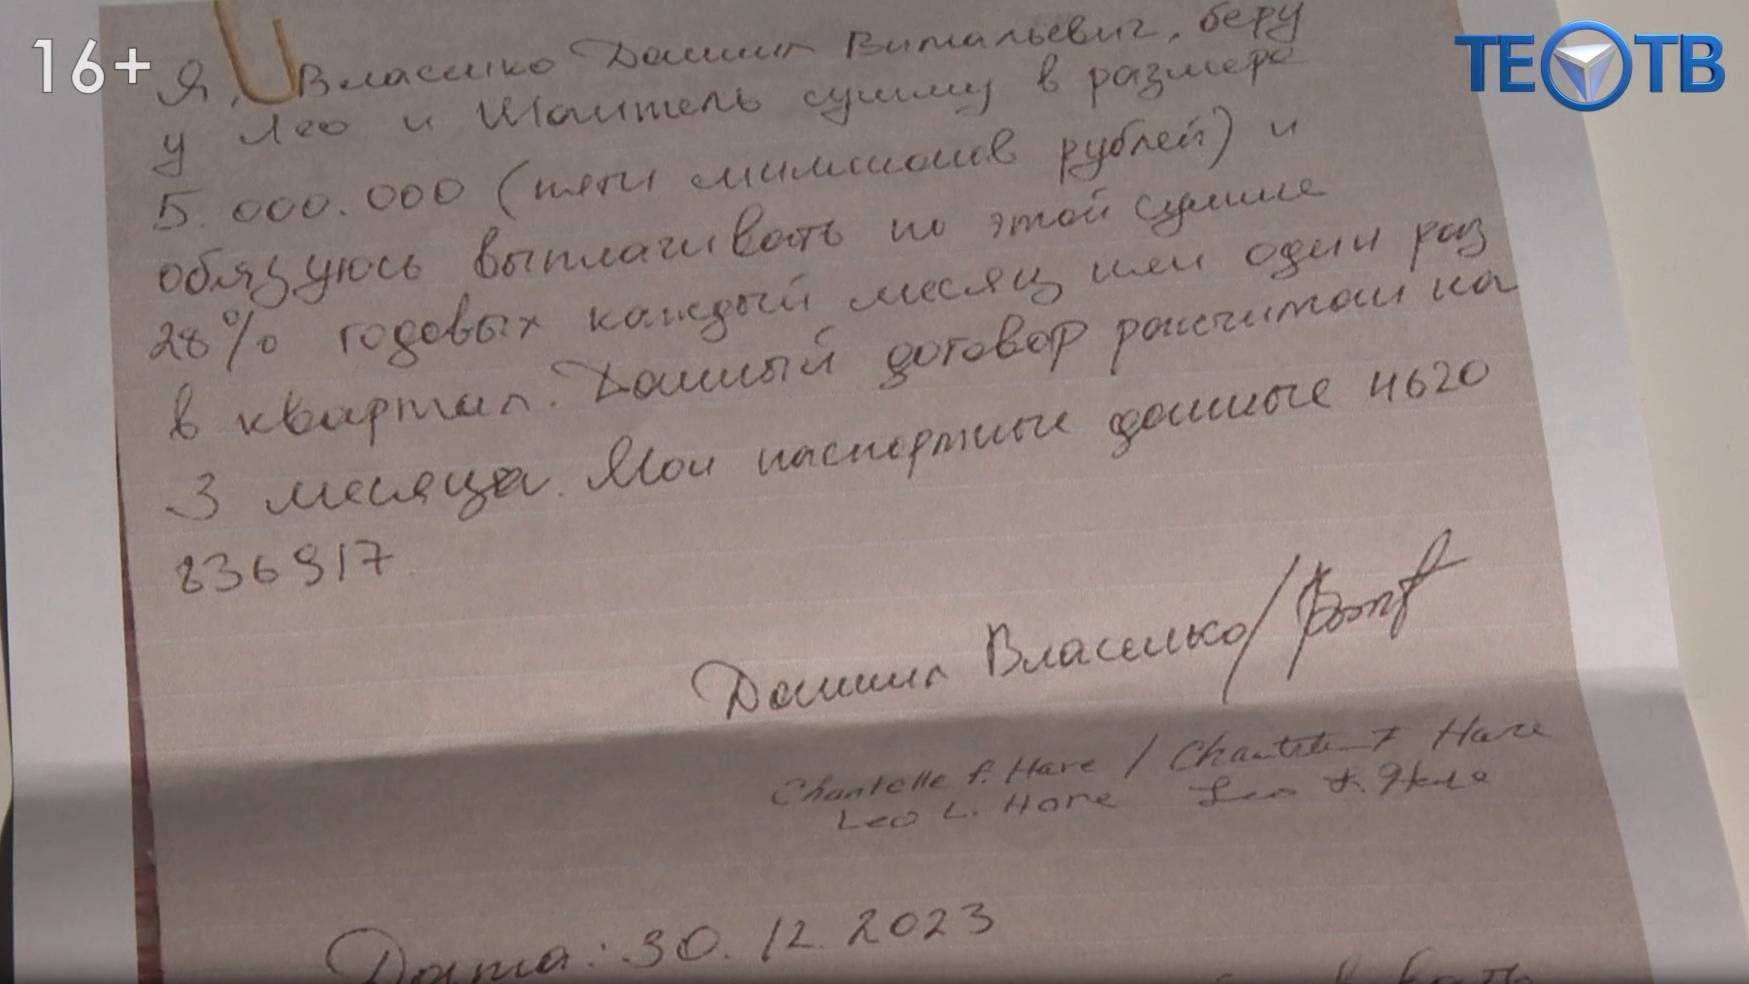 16+
ТЕОТВ
Я, Власенко Даниил Витальевич, беру
у Лео и Шантель сумму в размере
5.000.000 (пяти миллионов рублей) и
обязуюсь выплачивать по этой сумме
28% годовых каждый месяц или один раз
в квартал. Данный договор рассчитан на
3 месяца. Мои паспортные данные 4620
836917
Даниил Власенко/
Chantelle F. Hare / Chantelle F Hare
Leo L. Hare Leo L. Hare
Дата: 30.12.2023